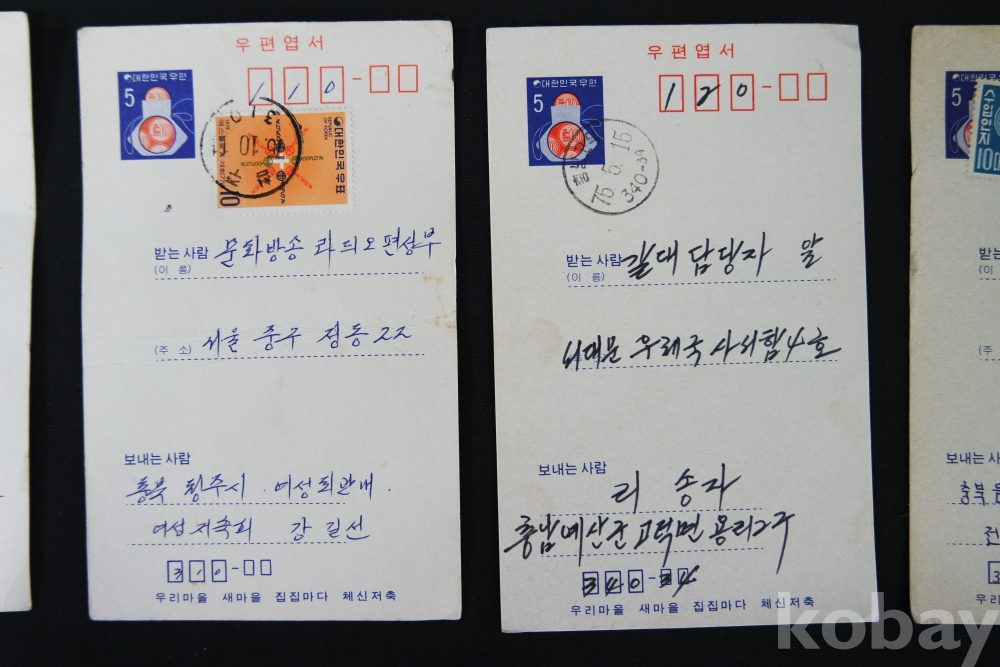 우편엽서
대한민국우편
5
110-
대한민국우표
REPUBLIC OF KOREA
10
받는사람 문화방송 라듸오 편성부
(이 름)
(주 소) 서울 중구 정동 22
보내는사람
충북 청주시 여성회관내
여성저축회 강길선
310-
우리마을 새마을 집집마다 체신저축
우편엽서
대한민국우편
5
120-
75.5.15
340-34
받는사람 길대담당자 앞
(이 름)
서대문 우체국 사서함 4호
보내는사람
리송자
충남예산군 고덕면 몽리2구
340-34
우리마을 새마을 집집마다 체신저축
대한민국
5
수입인지
10
받는사
(이
(주
보내는사
충북
전
3
우리
kobay